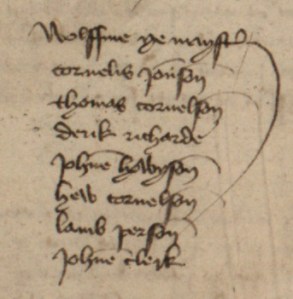 Wolffine ye mayst
cornelis jonson
thomas cornelson
derik richarde
johne hawyson
hew cornelson
lamb person
johne clerk